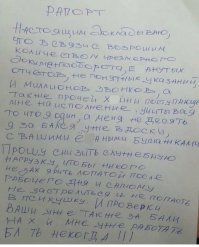 РАПОРТ
Настоящим докладываю,
что в связи с возросшим
количеством ненужного
документооборота, е анутых
отчетов, не понятных указаний,
и миллионов звонков, а
также прочей х йни поступающей
мне на исполнение, учитывая
то что я один, а меня не десять
я за бался уже в доски,
с вашими е аными бумажками
Прошу снизить служебную
нагрузку, чтобы никого
не зах ярить лопатой после
рабочего дня и самому
не застрелиться и не попасть
в психушку. И проверки
ваши мне также за бали
на х й и мне уже работать
бл ть некогда !!!